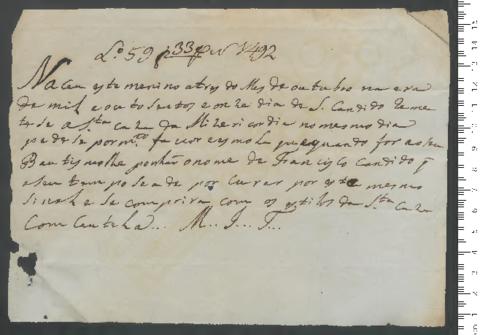 Lº 59 f 339 Nº 1492
Naceu este menino a tres do Mes de outubro na era
de mil e outo sentos e onze dia de S. Candido Reme
te se a Sta Caza da Mizericordia no mesmo dia
pede se por mce favor e esmola que quando for ao seu
Bautismo lhe ponhão o nome de Francisco Candido q̃
a seu tempo se ade percurar por este mesmo
sinal e se comprira com os estilos da Sta Caza
Com Cautela... M.. J... T...